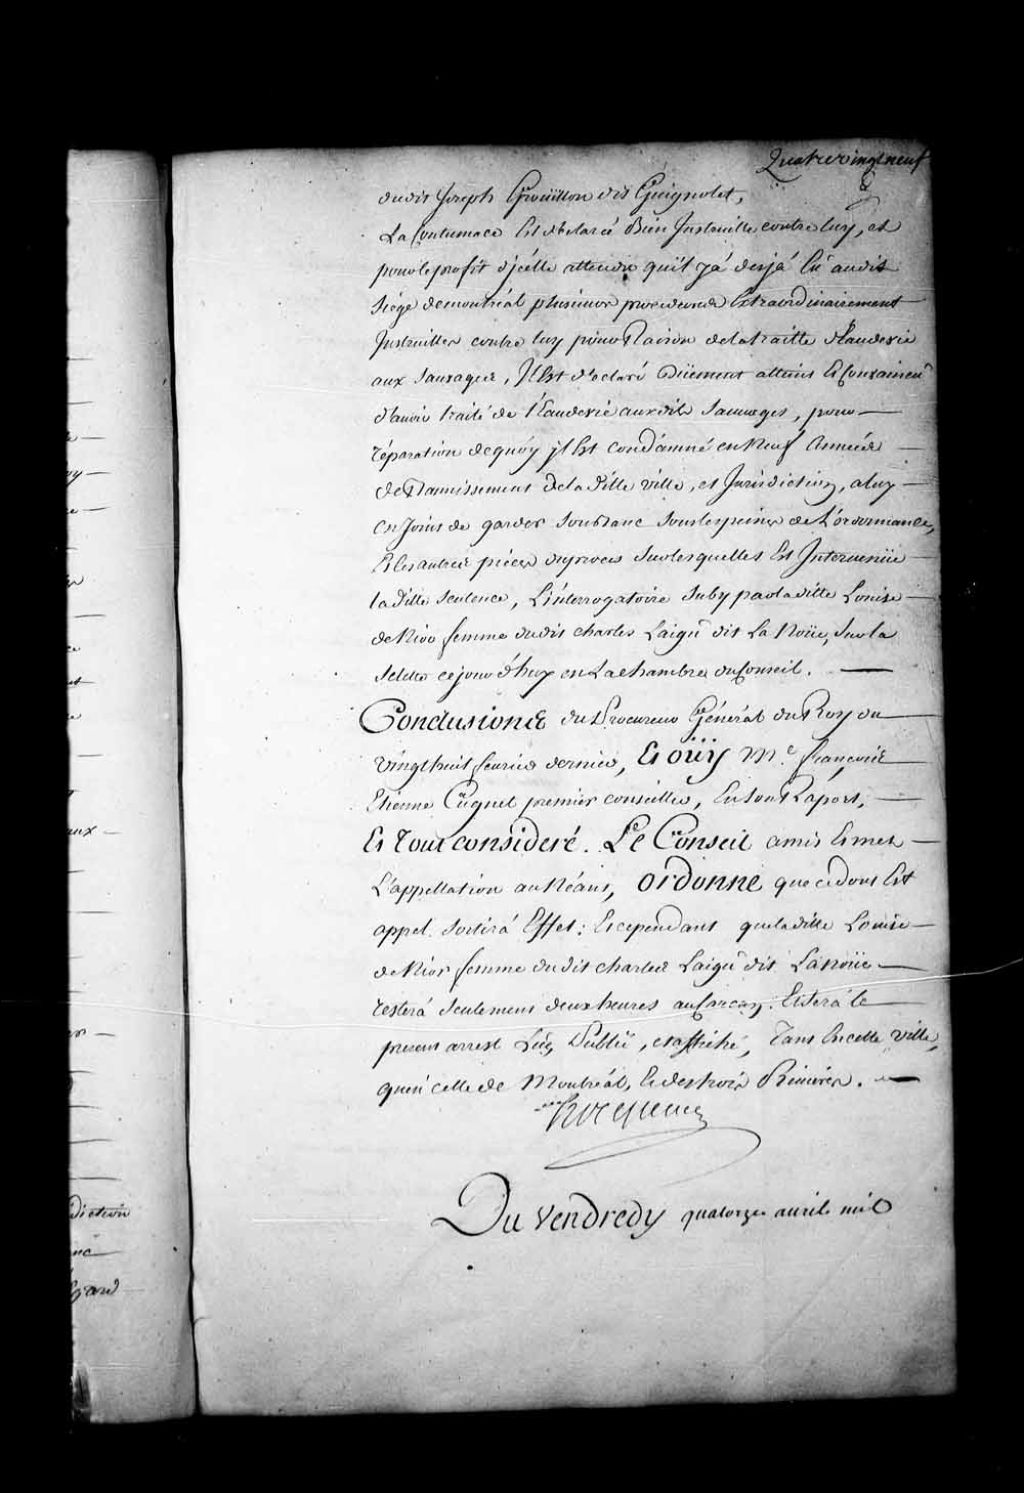 Quatrevingt neuf
dudit Joseph Groüillon dit Guignolet,
La Contumace Est déclarée Bien Instruitte contre luy, et
pour le profit d'jcelle attendu quil y á desjá eû audit
Siége de montréal plusieurs procedures Extraordinairement
Instruittes contre luy pour Raison de la traitte d'Eaudevie
aux Sauvages, Il Est déclaré Düement atteint Et Convaincu
d'auoir traité de l'Eaudevie auxdits Sauvages, pour
réparation dequoy jl Est condamné en Neuf Années
de Bannissement de la ditte ville, et Jurisdiction, a luy
Enjoint de garder Son banc Sous les peines de L'ordonnance,
Et les autres piéces du procés Sur lesquelles Est Interuenüe
la ditte Sentence, L'interrogatoire Suby par la ditte Louise
de Niort femme dudit charles Laigu dit La Noüe, Sur la
Sellette ce jourd'huy en La chambre du Conseil.
Conclusions du Procureur Général du Roy du
vingthuit feurier dernier, Et oüy Me. françois
Etienne Cügnet premier conseiller, En son Raport,
Et Tout consideré. Le Conseil a mis Et met
L'appellation au Néant, ordonne que ce dont Est
appel Sortirá Effet: Et cependant que la ditte Louise
de Niort femme du dit charles Laigu dit LaNoüe
restera seulement deux heures au Carcan; Et Serà le
present arrest Lû, Publié, et affiché, tant En cette ville,
qu'en celle de Montréal, Et des trois Riuieres.
Hocquart
Du Vendredy quatorze auril mil
diction
Egard